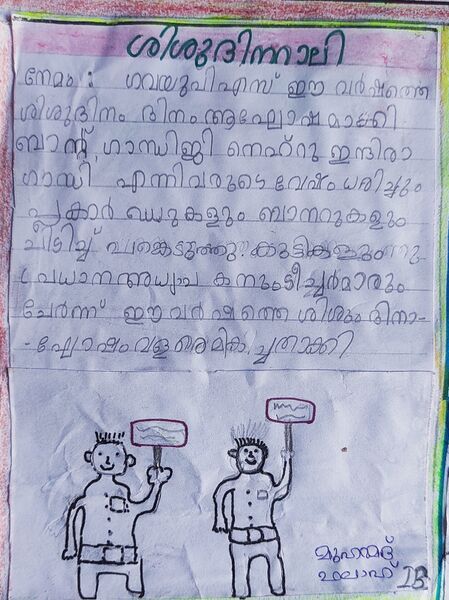 ശിശുദിനറാലി
നേമം : ഗവ യു പി എസ് ഈ വർഷത്തെ
ശിശുദിനം ദിനം ആഘോഷമാക്കി
ബാന്റ്, ഗാന്ധിജി നെഹ്റു ഇന്ദിരാ
ഗാന്ധി എന്നിവരുടെ വേഷം ധരിച്ചും
പ്ലക്കാർ ഡുകളും ബാനറുകളും
പിടിച്ച് പങ്കെടുത്തു. കുട്ടികളും
പ്രധാന അധ്യാപകനും ടീച്ചർമാരും
ചേർന്ന് ഈ വർഷത്തെ ശിശും ദിനാ-
-ഘോഷം വളരെ മികച്ചതാക്കി
മുഹമ്മദ്
1B